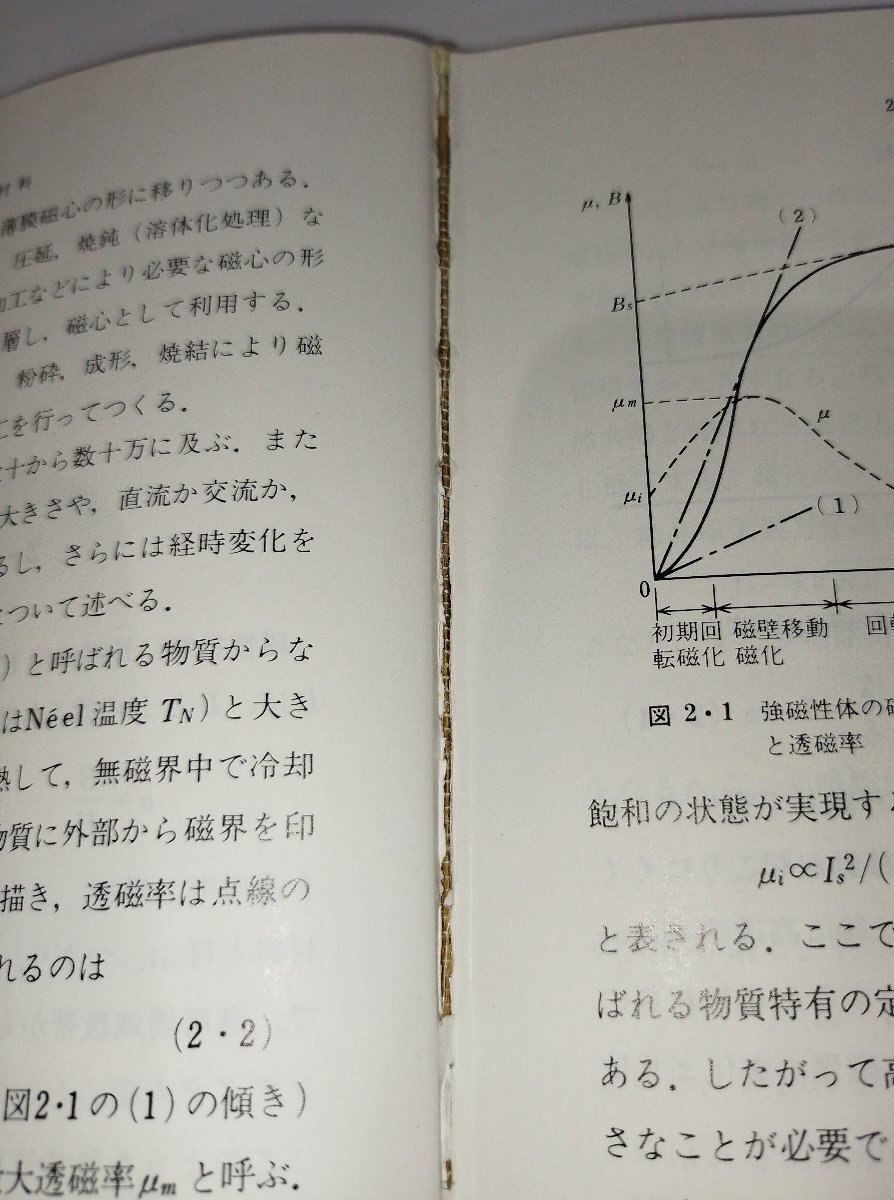 材料
薄膜磁心の形に移りつつある．
圧延，焼鈍（溶体化処理）な
加工などにより必要な磁心の形
層し，磁心として利用する．
粉砕，成形，焼結により磁
を行ってつくる．
十から数十万に及ぶ．また
大きさや，直流か交流か，
るし，さらには経時変化を
について述べる．
）と呼ばれる物質からな
はNéel 温度 TN）と大き
熱して，無磁界中で冷却
物質に外部から磁界を印
描き，透磁率は点線の
れるのは
（2・2）
図2・1の（1）の傾き）
大透磁率μm と呼ぶ．
2
μ, B
（2）
Bs
μm
μ
μi
（1）
0
初期回転磁化
磁壁移動磁化
回転
図 2・1 強磁性体の磁
と透磁率
飽和の状態が実現する
μi∝Is²/(
と表される．ここで
ばれる物質特有の定
ある．したがって高
さなことが必要で